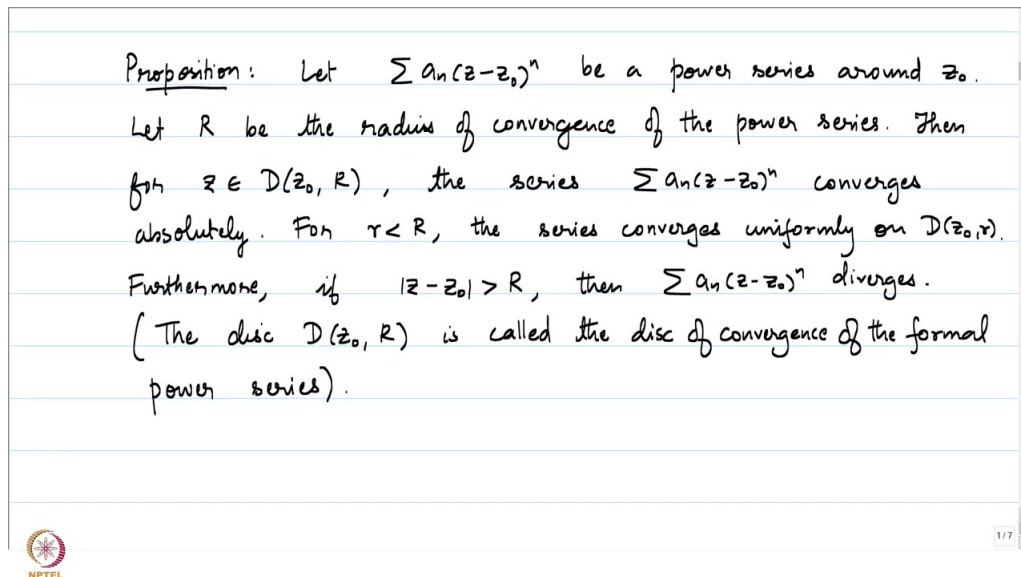 Proposition: Let ∑ aₙ(z-z₀)ⁿ be a power series around z₀.
Let R be the radius of convergence of the power series. Then
for z ∈ D(z₀, R), the series ∑ aₙ(z-z₀)ⁿ converges
absolutely. For r<R, the series converges uniformly on D(z₀,r).
Furthermore, if |z-z₀| > R, then ∑ aₙ(z-z₀)ⁿ diverges.
(The disc D(z₀, R) is called the disc of convergence of the formal
power series).
1/7
NPTEL